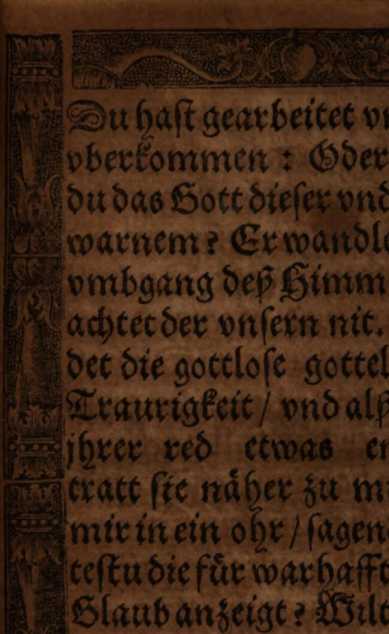 Du hast gearbeitet
vberkommen : Oder
du das Gott dieser vnd
warnem? Er wandle
vmbgang deß Himm
achtet der vnsern nit.
det die gottlose gottel
Traurigkeit / vnd alß
jhrer red etwas er
tratt sie näher zu mi
mir in ein ohr / sagen
testu die für warhafft
Glaub anzeigt? Wilt